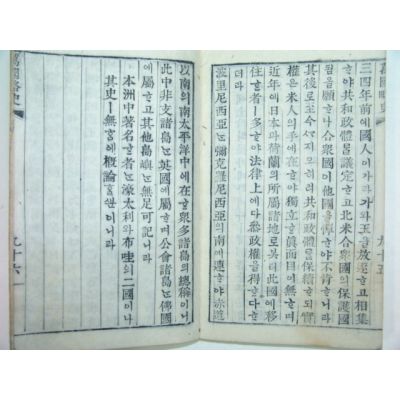 萬國略史 九十五
三四年前에國人이가라가와王을放逐ᄒᆞ고相集
ᄒᆞ야共和政體를議定ᄒᆞ고北米合衆國의保護國
을願ᄒᆞ나合衆國이他國을憚ᄒᆞ야不肯ᄒᆞ니
其後로至今ᄭᆞ지오히려共和政體를保續ᄒᆞ나實
權은米人의手에在ᄒᆞ야獨立의眞面目이無ᄒᆞ며
近年에日本과荷蘭의所屬諸地로브터此國에移
住ᄒᆞᄂᆞᆫ者ㅣ多ᄒᆞ야法律上에다參政權을得ᄒᆞ다ᄒᆞ
더라
波里尼西亞ᄂᆞᆫ彌克羅尼西亞의南에連ᄒᆞ야赤道
以南의南太平洋中에在ᄒᆞᆫ衆多諸島의總稱이니
此中非支諸島ᄂᆞᆫ英國에屬ᄒᆞ며公會諸島ᄂᆞᆫ佛國
에屬ᄒᆞ고其他島嶼ᄂᆞᆫ無足可記니라
本洲中著名ᄒᆞᆫ者ᄂᆞᆫ濠太利와布哇의二國이나
其史ㅣ無ᄒᆞᆷ에概論ᄒᆞᆯᄲᅮᆫ이니라
萬國略史 九十六